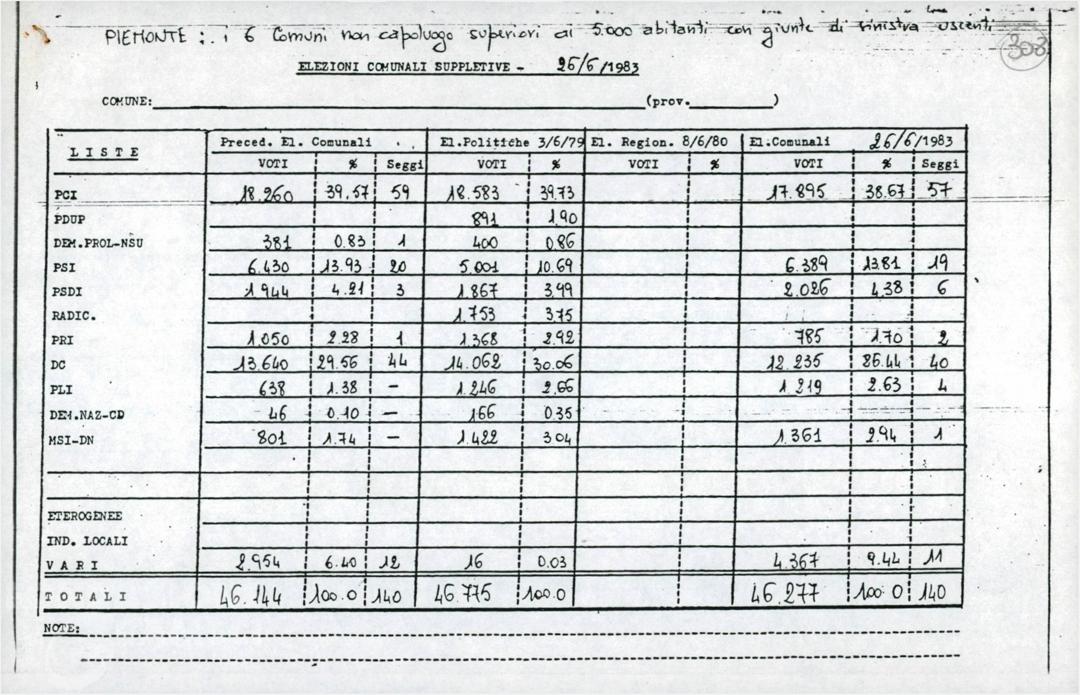 PIEMONTE : i 6 Comuni non capoluogo superiori ai 5.000 abitanti con giunte di sinistra uscenti
303
ELEZIONI COMUNALI SUPPLETIVE - 26/6/1983
COMUNE: (prov. )
LISTE Preced. El. Comunali El.Politiche 3/6/79 El. Region. 8/6/80 El.Comunali 26/6/1983
VOTI % Seggi VOTI % VOTI % VOTI % Seggi
PCI 18.260 39,57 59 18.583 39.73 17.895 38.67 57
PDUP 891 1.90
DEM.PROL-NSU 381 0.83 1 400 0.86
PSI 6.430 13.93 20 5.001 10.69 6.389 13.81 19
PSDI 1.944 4.21 3 1.867 3.99 2.026 4,38 6
RADIC. 1.753 3.75
PRI 1.050 2.28 1 1.368 2.92 785 1.70 2
DC 13.640 29.56 44 14.062 30.06 12.235 26.44 40
PLI 638 1.38 – 1.246 2.66 1 219 2.63 4
DEM.NAZ-CD 46 0.10 – 166 0.35
MSI-DN 801 1.74 – 1.422 3 04 1.361 2.94 1
ETEROGENEE
IND. LOCALI
VARI 2.954 6.40 12 16 0.03 4.367 9.44 11
TOTALI 46.144 100.0 140 46.775 100.0 46.277 100.0 140
NOTE: